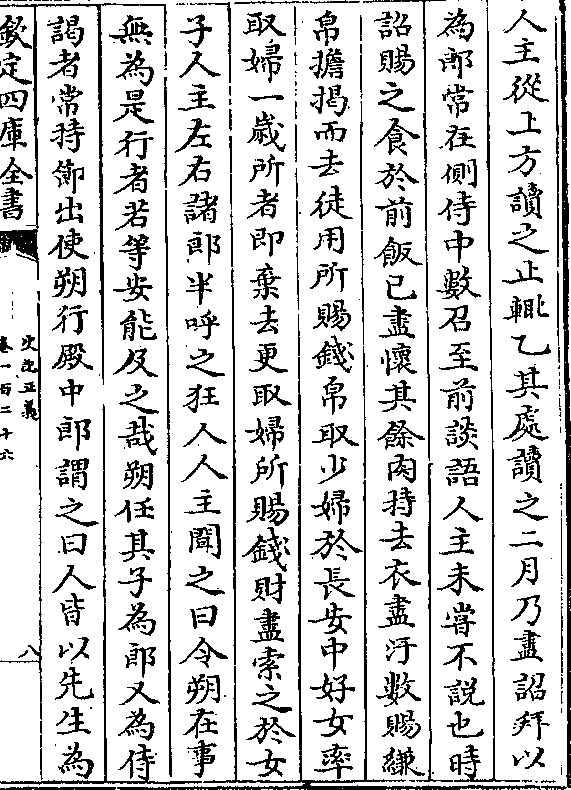 人主從上方讀之止輙乙其處讀之二月乃盡詔拜以
為郎常在側侍中數召至前談語人主未嘗不説也時
詔賜之食於前飯已盡懷其餘肉持去衣盡汙數賜縑
帛擔揭而去徒用所賜錢帛取少婦於長安中好女率
取婦一歲所者即棄去更取婦所賜錢財盡索之於女
子人主左右諸郎半呼之狂人人主聞之曰令朔在事
無為是行者若等安能及之哉朔任其子為郎又為侍
謁者常持節出使朔行殿中郎謂之曰人皆以先生為
欽定四庫全書
史記正義
卷一百二十六
八